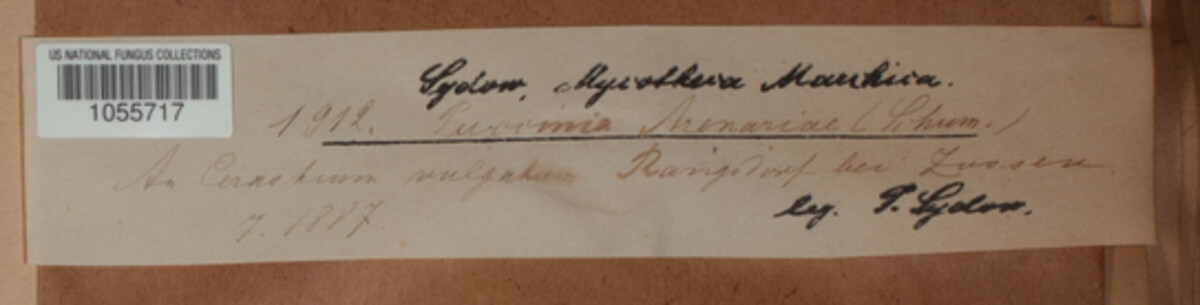 US NATIONAL FUNGUS COLLECTIONS
1055717
Sydow, Mycotheca Marchica.
1912. Puccinia Arenariae (Schum.)
An Cerastium vulgatum Rangsdorf bei Zossen.
7. 1887.
leg. P. Sydow.